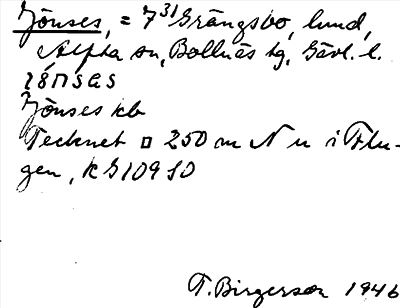 Jönses, = 7³¹ Grängsbo, lund,
Alfta sn, Bollnäs tg, Gävl. l.
Jönses kb
Tecknet □ 250 m N u i Flu-
gen, k G 10 9 S 0
T. Birgerson 1946